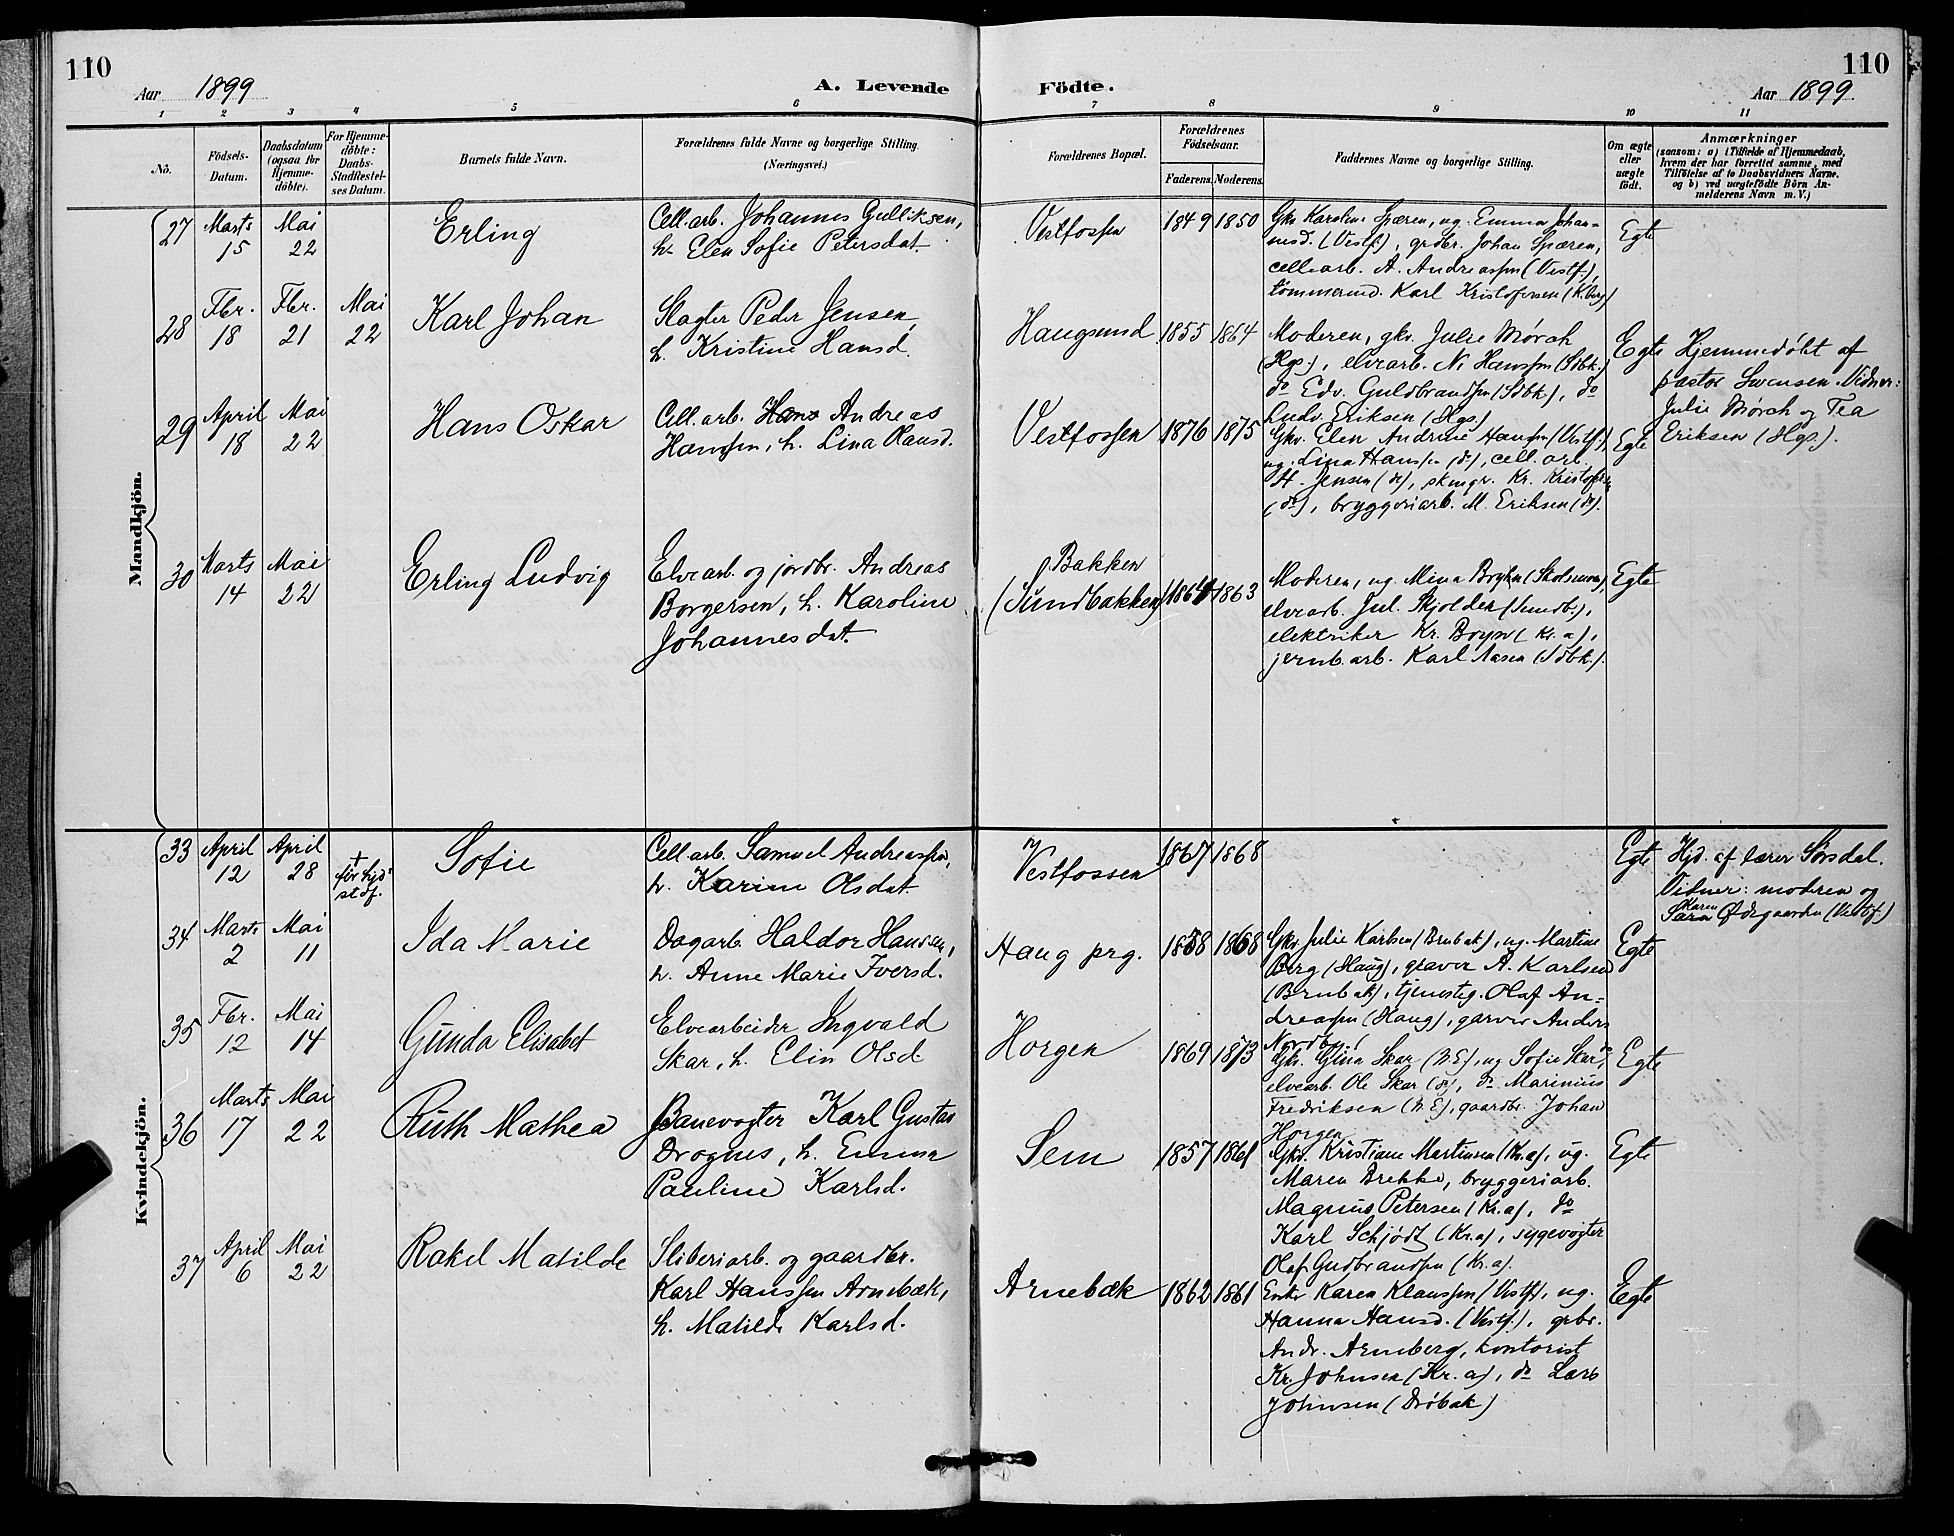 110
Aar 1899
A. Levende
1 2 3 4 5 6
No.
Födsels-
Datum.
Daabsdatum
(ogsaa for
Hjemme-
döbte).
For Hjemme-
döbte:
Daabs-
Stadfæstel-
ses Datum.
Barnets fulde Navn.
Forældrenes fulde Navne og borgerlige Stilling.
(Næringsvei.)
110
Födte.
Aar 1899.
7 8 9 10 11
Forældrenes Bopæl.
Forældrenes
Födselsaar.
Faderens. Moderens.
Faddernes Navne og borgerlige Stilling.
Om ægte
eller
uægte
födt.
Anmærkninger
(saasom: a) i Tilfælde af Hjemmedaab,
hvem der har forrettet samme, med
Tilföielse af to Daabsvidners Navne.
og b) ved uægtefödte Börn An-
melderens Navn m. V.)
Mandkjön.
27
Marts
15
Mai
22
Erling
Cell.arb. Johannes Gulliksen,
h. Elen Sofie Petersdat.
Vestfossen
1849 1850
Gkv. Karoline Spæren, ug. Emma Johan-
nesd. (Vestf.), grdbr. Johan Spæren,
cellearb. A. Andreassen (Vestf.),
tömmermd. Karl Kristofersen (K.berg)
Egte
28
Fbr.
18
Fbr.
21
Mai
22
Karl Johan
Slagter Peder Jensen,
h. Kristine Hansd.
Haugsund
1855 1864
Moderen, gkv. Julie Mörch
(Hgs.), elvearb. N. Hanssen (Sdbk.)
do Edv. Guldbrandsen (Sdbk.), do
Ludv. Eriksen (Hgs.)
Egte
Hjemmedöbt af
pastor Svensen. Vidner:
Julie Mörch og Tea
Eriksen (Hgs.).
29
April
18
Mai
22
Hans Oskar
Cell.arb. Hans Andreas
Hanssen, h. Lina Hansd.
Vestfossen
1876 1875
Gkv. Elen Andrine Hanssen (Vestf.),
ug. Lina Hanssen (do), cell.arb.
H. Jensen (do), skmgr. Kr. Kristofersen
(do), bryggeriarb. M. Eriksen (do).
Egte
30
Marts
14
Mai
22
Erling Ludvig
Elvearb. og jordbr. Andreas
Borgersen, h. Karoline
Johannesdat.
Bakken
(Sundbakken)
1864 1863
Moderen, ug. Mina
elvearb. Jul. Skjolden (Sundb.),
elektriker Kr. (Kr.a),
jernb.arb. Karl Aasen (Sdbk.).
Egte
Kvindekjön.
33
April
12
April
28
+
för hjd.
stdf.
Sofie
Cell.arb. Samuel Andreassen,
h. Karine Olsdat.
Vestfossen
1867 1868
Egte
Hjd. af lærer Sörsdal.
Vidner: moderen og
Karen
Sara Ödegaarden (Vestf.)
34
Marts
2
Mai
11
Ida Marie
Dagarb. Haldor Hansen,
h. Anne Marie Iversd.
Haug prg.
1858 1868
Gkv. Julie Karlsen (Brubak), ug. Martine
Berg (Haug), graver A. Karlsen
(Brubak), tjenesteg. Olaf An-
dreassen (Haug), garver Anders
Nordby.
Egte
35
Fbr.
12
Mai
14
Gunda Elisabet
Elvearbeider Ingvald
Skar, h. Elin Olsd.
Horgen
1869 1873
Gkv. Gina Skar (N.E), ug. Sofie Skar do,
elvearb. Ole Skar (do), do Marinius
Fredriksen (N.E), gaardbr. Johan
Horgen.
Egte
36
Marts
17
Mai
22
Ruth Mathea
Banevogter Karl Gustav
Drognes, h. Emma
Pauline Karlsd.
Sem
1857 1861
Gkv. Kristiane Martinsen (Kr.a), ug.
Maren Brekke, bryggeriarb.
Magnus Petersen (Kr.a), do
Karl Schjödt (Kr.a), sygevogter
Olaf Gudbrandsen (Kr.a).
Egte
37
April
6
Mai
22
Rakel Matilde
Sliberiarb. og gaardbr.
Karl Hanssen Arnebæk,
h. Matilde Karlsd.
Arnebæk
1862 1861
Enke Karen Klaussen (Vestf.), ug.
Hanna Hansd. (Vestf.), grbr.
Andr. Arneberg, kontorist
Kr. Johnsen (Kr.a), do Lars
Johnsen (Dröbak)
Egte